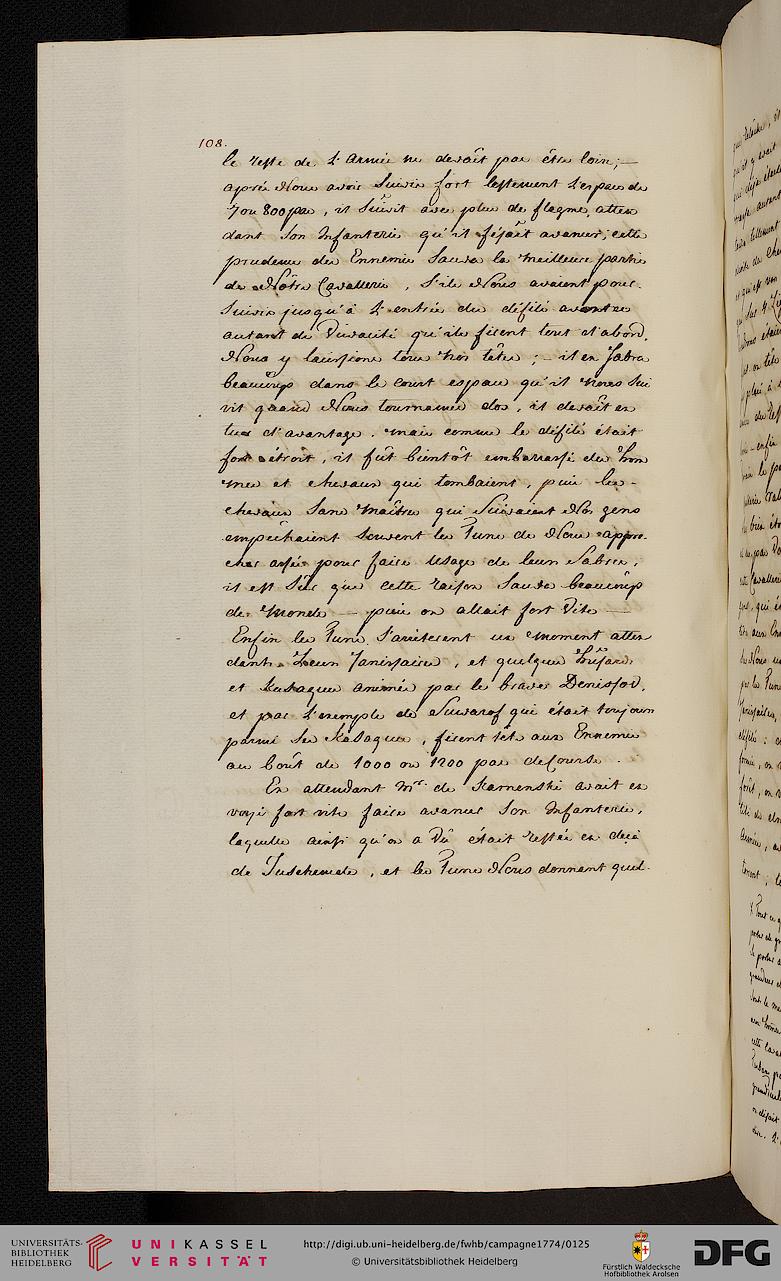 108.
le reste de L'Armée ne devoit pas être loin; —
après Nous avoir Suivis fort lestement L'espace de
7 ou 800 pas, il Suivit avec plus de flegme, atten
dant Son Infanterie qu'il fésoit avancer; cette
prudence des Ennemis Sauva la meilleure partie
de Nôtre Cavallerie, S'ils Nous avaient pour
Suivis jusqu'à L'entrée du défilé avec
autant de Vivacité qu'ils firent tout d'abord,
Nous y laissions tous nos têtes; — il en Sabra
beaucoup dans le court espace qu'il nous Sui
vit quand Nous tournames dos, il devoit en
tuer d'avantage. mais comme le défilé étoit
fort étroit, il fût bientôt embarassé des hom
mes et chevaux qui tombaient, puis les
chevaux Sans maitres qui Suivaient Nos gens
empêchaient Souvent les Turcs de Nous appro-
cher assés pour faire usage de leurs Sabres,
il est Sûr que cette raison Sauva beaucoup
de Monde — puis on allait fort vite —
Enfin les Turcs S'arrêterent un moment atten
dant Leurs Janissaires, et quelques Husards
et Kasaques animés par le brave Denisfov,
et par L'exemple de Suwarof qui étoit toujours
parmi Les Kasaques, firent tête aux Ennemis
au bout de 1000 ou 1200 pas de Course.
En attendant Mr. de Kamenski avait en
voyé fort vite faire avancer Son Infanterie,
laquelle ainsi qu'on a Vû était restée en deçà
de Juschemele, et les Turcs Nous donnant quel-
UNIVERSITÄTS-
BIBLIOTHEK
HEIDELBERG
UNIKASSEL
VERSITÄT
http://digi.ub.uni-heidelberg.de/fwhb/campagne1774/0125
© Universitätsbibliothek Heidelberg
Fürstlich Waldecksche
Hofbibliothek Arolsen
DFG